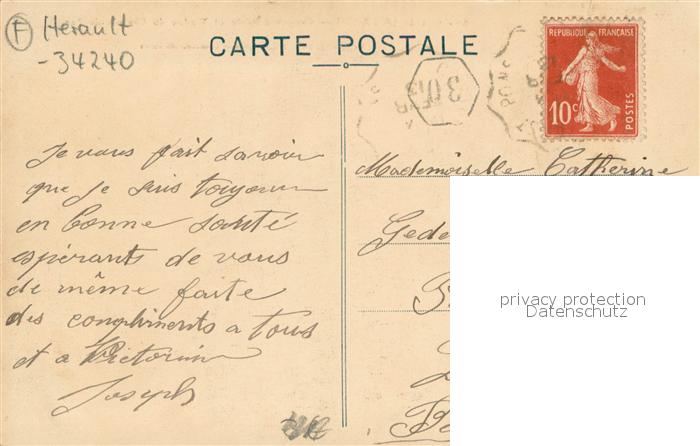 F Herault
-34240
CARTE POSTALE
REPUBLIQUE FRANÇAISE
10c POSTES
Je vous fait savoir
que je suis toujours
en bonne santé
espérants de vous
de même faite
des compliments a tous
et a Victorin
Joseph
Mademoiselle Catherine
privacy protection
Datenschutz